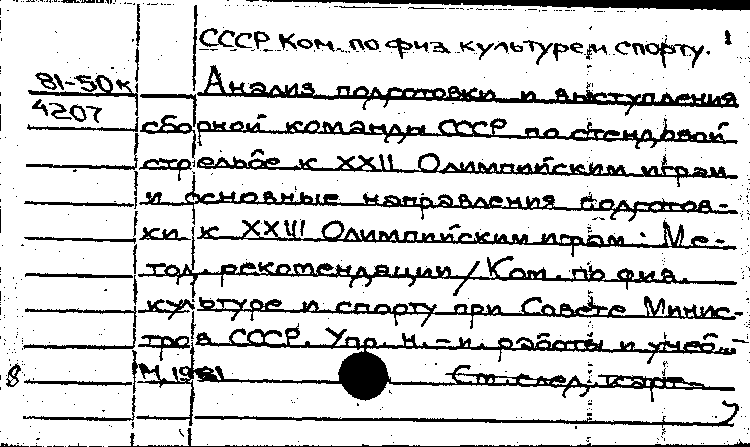 СССР Ком. по физ. культуре и спорту. 1
81-50к
4207
Анализ подготовки и выступления
сборной команды СССР по стендовой
стрельбе к XXII Олимпийским играм
и основные направления подготов-
ки к XXIII Олимпийским играм : Ме-
тод. рекомендации / Ком. по физ.
культуре и спорту при Совете Минис-
тров СССР. Упр. н.-и. работы и учеб.
8 М, 1981 См. след. карт.